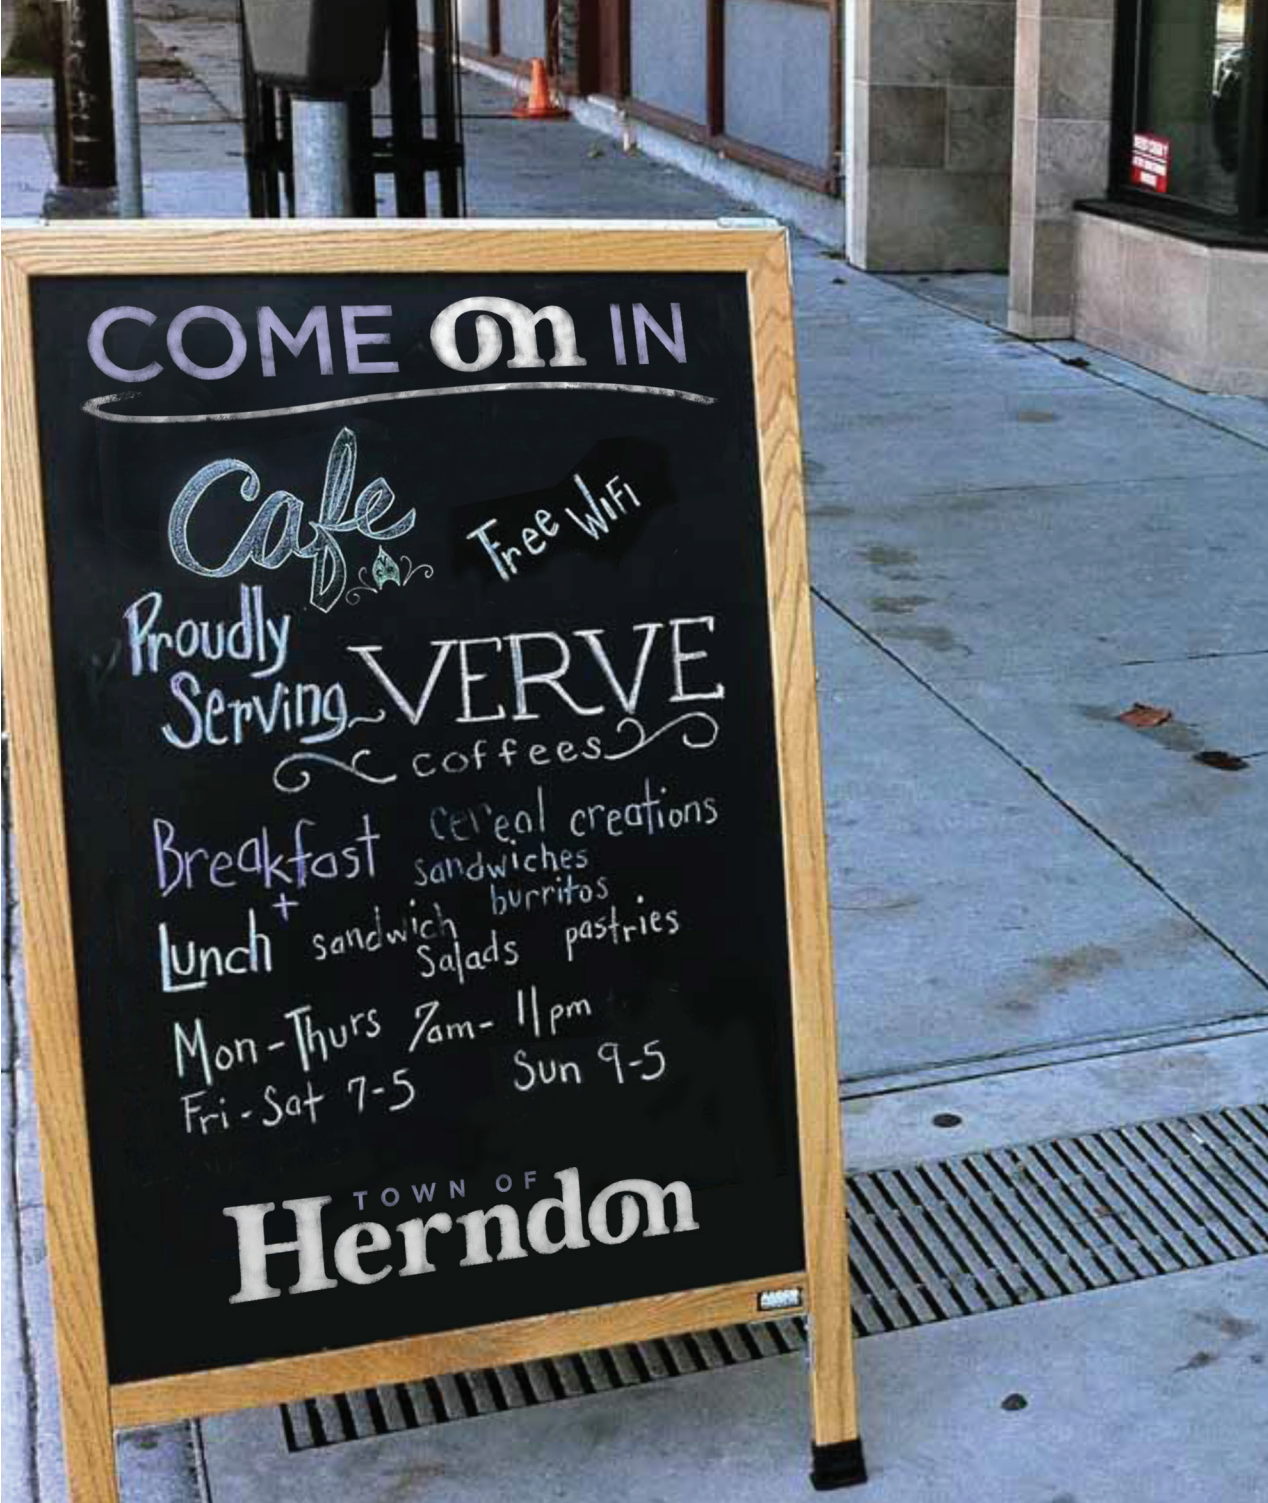 COME on IN
Cafe
Free WiFi
Proudly
Serving VERVE
coffees
Breakfast cereal creations
sandwiches
burritos
+
Lunch sandwich
Salads pastries
Mon-Thurs 7am-11pm
Fri-Sat 7-5 Sun 9-5
TOWN OF
Herndon